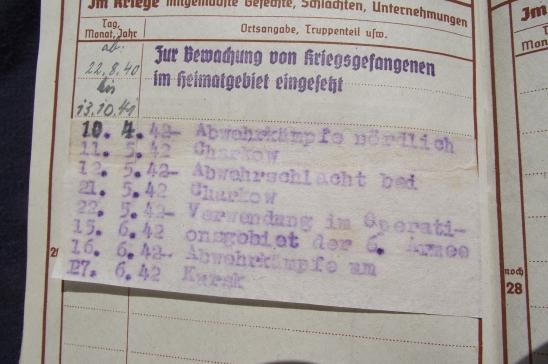 Im Kriege mitgemachte Gefechte, Schlachten, Unternehmungen
Tag, Monat, Jahr
Ortsangabe, Truppenteil usw.
ab.
22.8.40
bis
13.10.41
Zur Bewachung von Kriegsgefangenen
im Heimatgebiet eingesetzt
10. 4. 42- Abwehrkämpfe nördlich
11. 5. 42 Charkow
12. 5. 42- Abwehrschlacht bei
21. 5. 42 Charkow
22. 5. 42- Verwendung im Operati-
15. 6. 42 onsgebiet der 6. Armee
16. 6. 42- Abwehrkämpfe um
27. 6. 42 Kursk
noch
28
Im
Tag
Mona